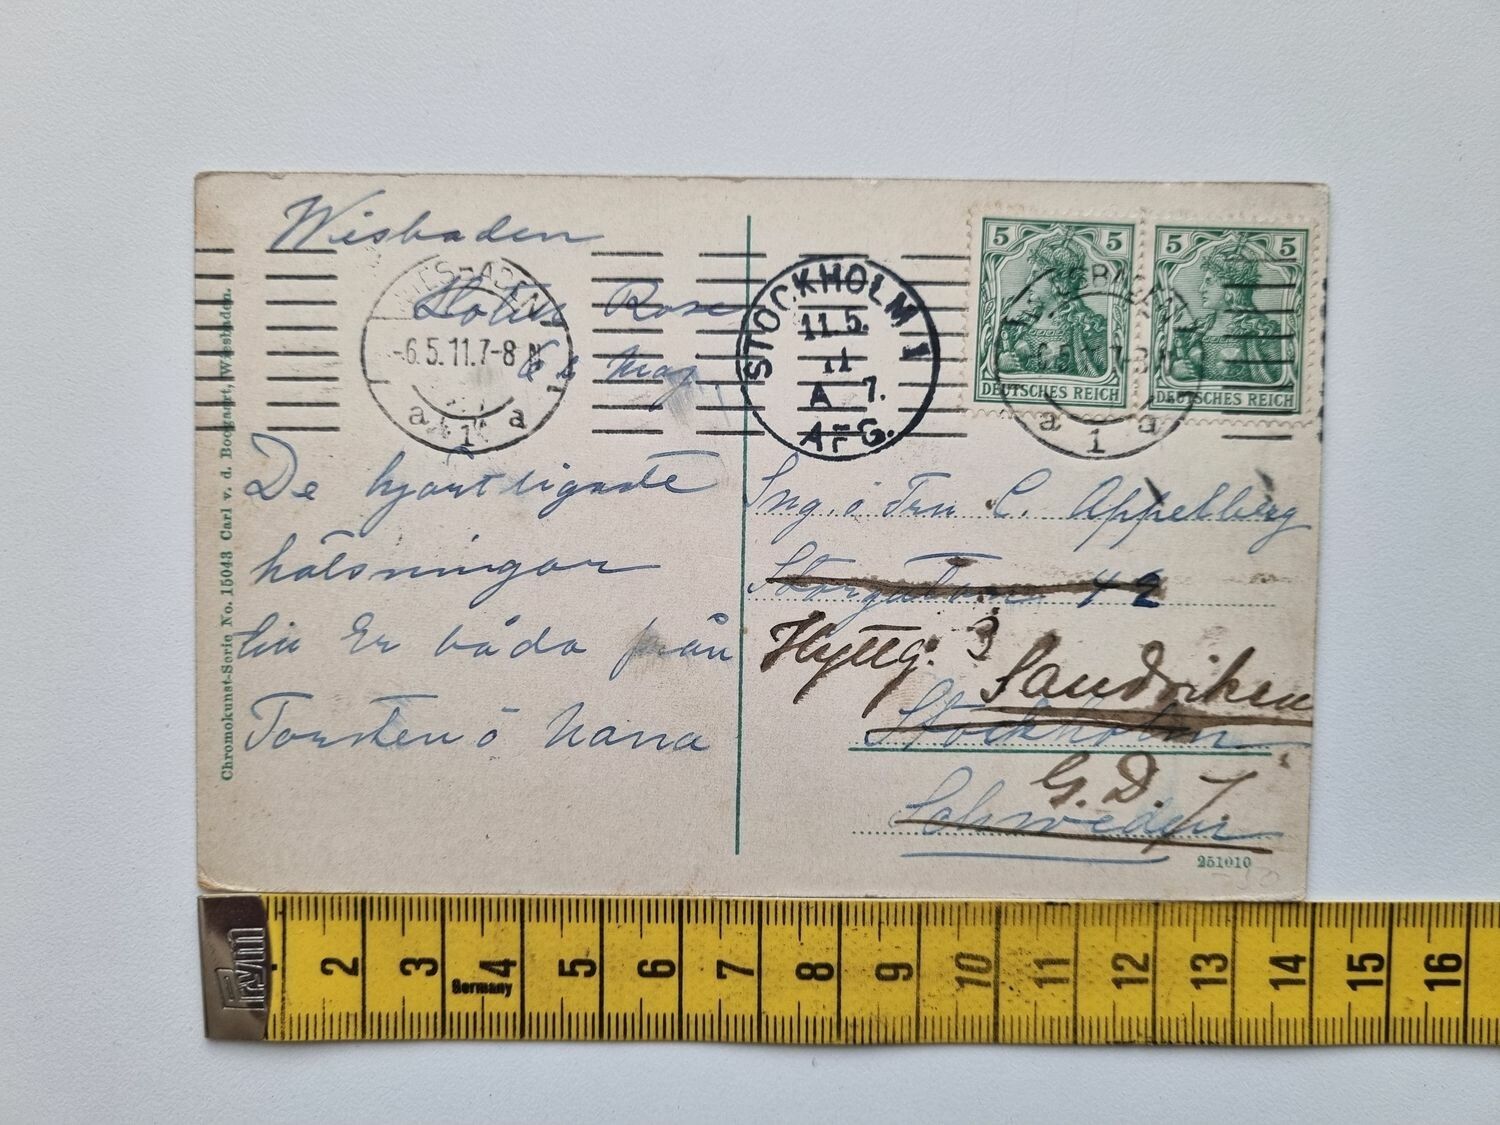 Wisbaden
Hotel Rose
6 Maj
De hjärtligaste
hälsningar
från
Torsten o Nana
WIESBADEN
-6.5.11.7-8 N
a 1 a
STOCKHOLM 1
11.5.
11
A 7.
5 5
DEUTSCHES REICH
5 5
DEUTSCHES REICH
WIESBADEN
a 1 a
Ing. o Fru C. Appelberg
Storgatan 42
Hyttg. 3
Sandviken
Stockholm
G. D. J.
Schweden
251010
Chromokunst-Serie No. 15043 Carl v. d. Boogaart, Wiesbaden.
2 3 4 5 6 7 8 9 10 11 12 13 14 15 16
Germany